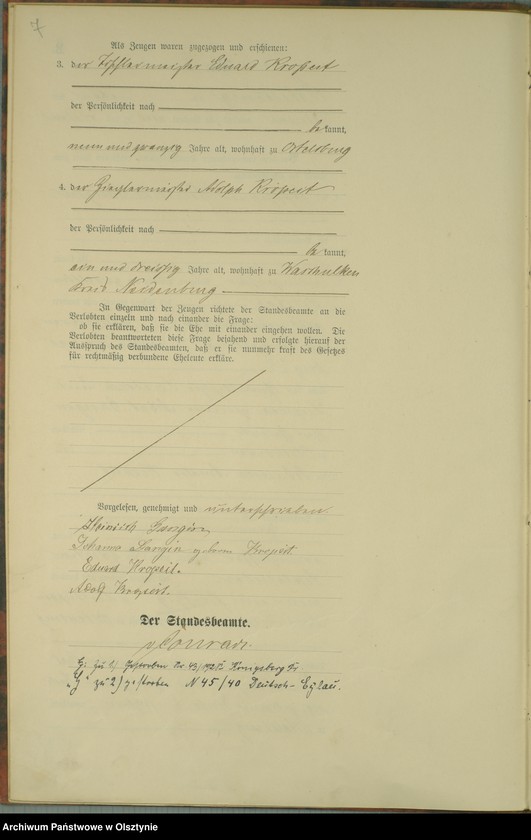 7
Als Zeugen waren zugezogen und erschienen:
3. der Tischlermeister Eduard Kropeit
der Persönlichkeit nach
be kannt,
neun und zwanzig Jahre alt, wohnhaft zu Ortelsburg
4. der Zieglermeister Adolph Kropeit
der Persönlichkeit nach
be kannt,
ein und dreißig Jahre alt, wohnhaft zu Waschulken
Kreis Neidenburg
In Gegenwart der Zeugen richtete der Standesbeamte an die
Verlobten einzeln und nach einander die Frage:
ob sie erklären, daß sie die Ehe mit einander eingehen wollen. Die
Verlobten beantworteten diese Frage bejahend und erfolgte hierauf der
Ausspruch des Standesbeamten, daß er sie nunmehr kraft des Gesetzes
für rechtmäßig verbundene Eheleute erkläre.
Vorgelesen, genehmigt und unterschrieben.
Heinrich
Johanna geborene Kropeit
Eduard Kropeit.
Adolf Kropeit.
Der Standesbeamte.
Conrad.
G: zu 1) Gestorben Nr. Königsberg Pr
"G" zu 2) gestorben N 45/40 Deutsch-Eylau.
Archiwum Państwowe w Olsztynie